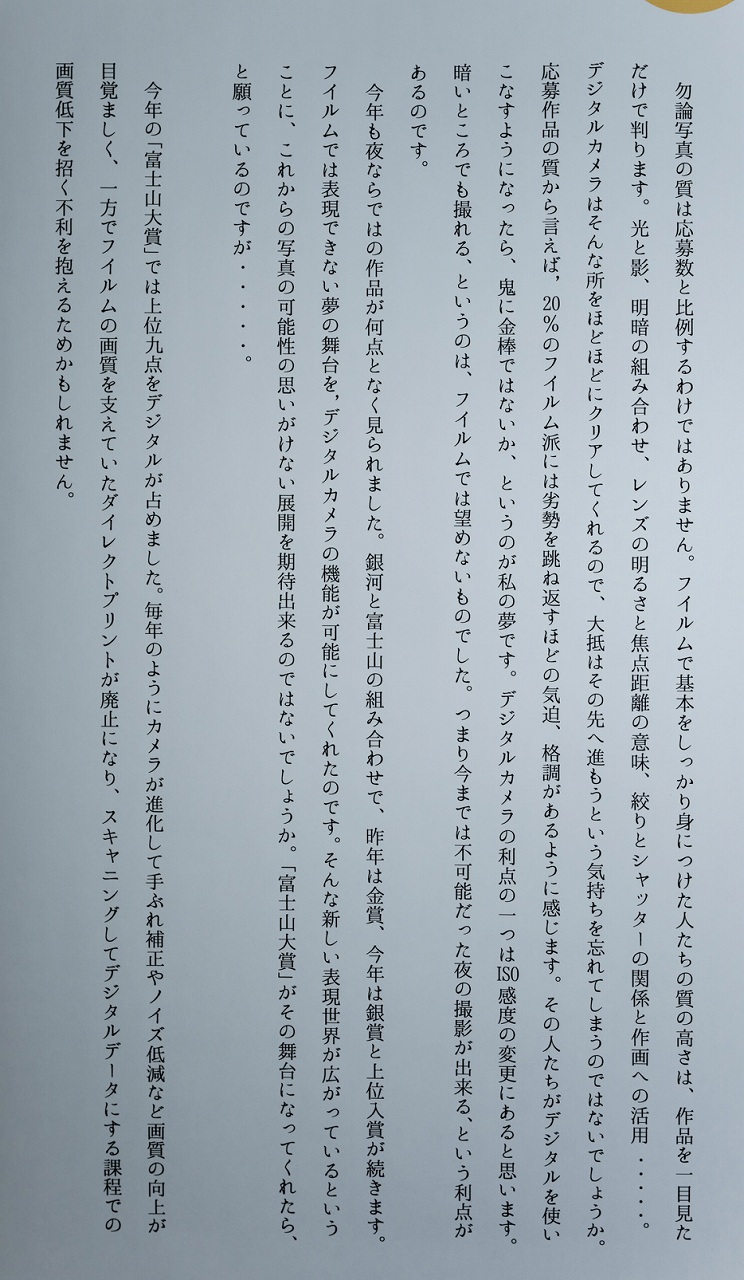 勿論写真の質は応募数と比例するわけではありません。フイルムで基本をしっかり身につけた人たちの質の高さは、作品を一目見た
だけで判ります。光と影、明暗の組み合わせ、レンズの明るさと焦点距離の意味、絞りとシャッターの関係と作画への活用・・・・・。
デジタルカメラはそんな所をほどほどにクリアしてくれるので、大抵はその先へ進もうという気持ちを忘れてしまうのではないでしょうか。
応募作品の質から言えば，20％のフイルム派には劣勢を跳ね返すほどの気迫、格調があるように感じます。その人たちがデジタルを使い
こなすようになったら、鬼に金棒ではないか、というのが私の夢です。デジタルカメラの利点の一つはISO感度の変更にあると思います。
暗いところでも撮れる、というのは、フイルムでは望めないものでした。つまり今までは不可能だった夜の撮影が出来る、という利点が
あるのです。
今年も夜ならではの作品が何点となく見られました。銀河と富士山の組み合わせで、昨年は金賞、今年は銀賞と上位入賞が続きます。
フイルムでは表現できない夢の舞台を，デジタルカメラの機能が可能にしてくれたのです。そんな新しい表現世界が広がっているという
ことに、これからの写真の可能性の思いがけない展開を期待出来るのではないでしょうか。「富士山大賞」がその舞台になってくれたら、
と願っているのですが・・・・・。
今年の「富士山大賞」では上位九点をデジタルが占めました。毎年のようにカメラが進化して手ぶれ補正やノイズ低減など画質の向上が
目覚ましく、一方でフイルムの画質を支えていたダイレクトプリントが廃止になり、スキャニングしてデジタルデータにする課程での
画質低下を招く不利を抱えるためかもしれません。